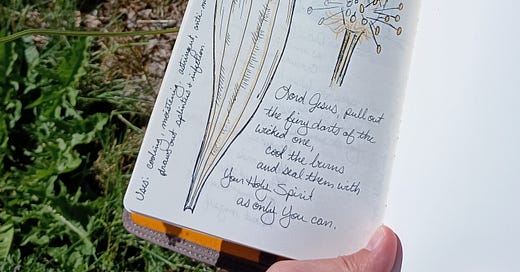 Uses: cooling, moistening, astringent, anti-m
draws out splinters + infection.
Lord Jesus, pull out
the fiery darts of the
wicked one,
cool the burns
and seal them with
Your Holy Spirit
as only You can.